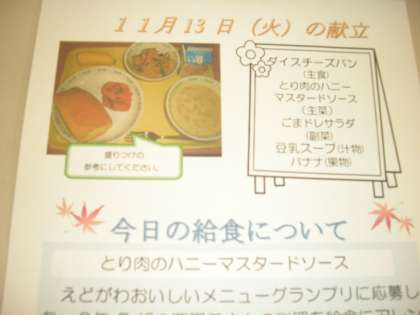 11月13日(火)の献立
ダイスチーズパン
(主食)
とり肉のハニー
マスタードソース
(主菜)
ごまドレサラダ
(副菜)
豆乳スープ(汁物)
バナナ(果物)
盛りつけの
参考にしてください。
今日の給食について
とり肉のハニーマスタードソース
えどがわおいしいメニューグランプリに応募し